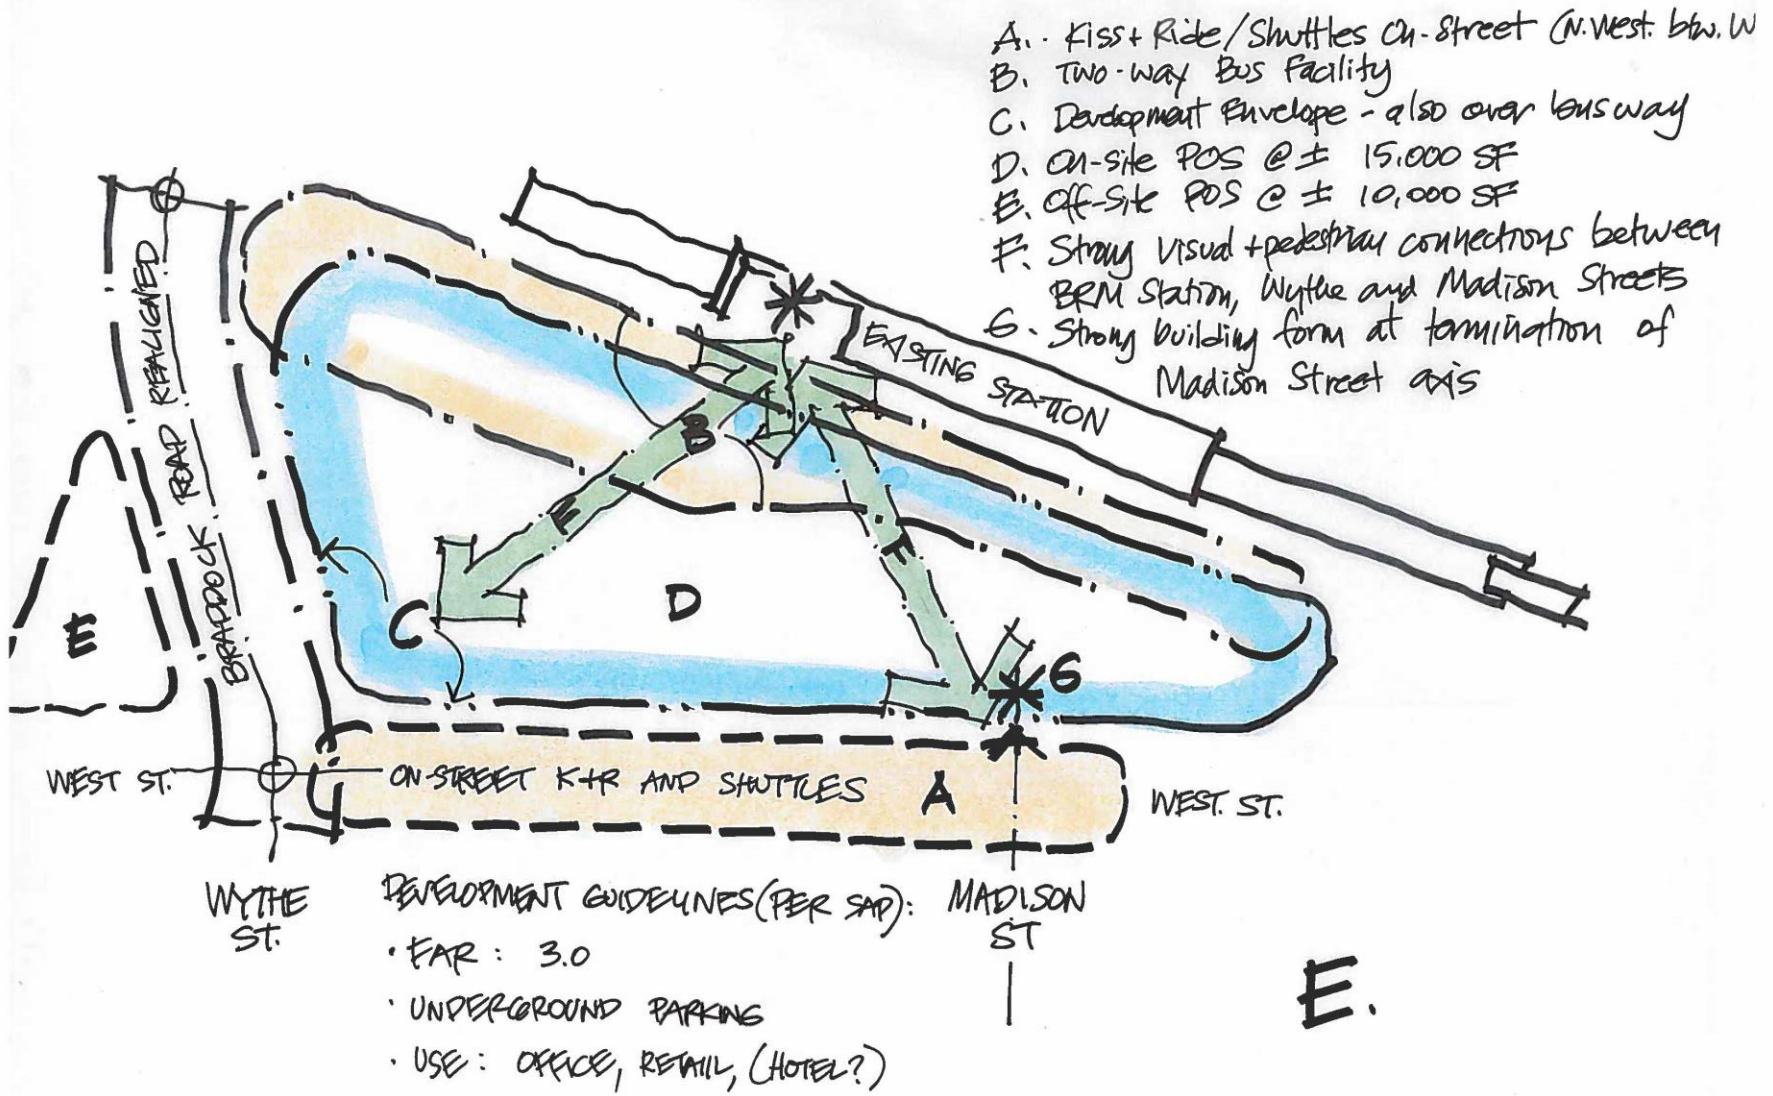 A. Kiss + Ride/Shuttles On-Street (N. West. btw. W
B. Two-way Bus Facility
C. Development Envelope - also over busway
D. On-site POS @ ± 15,000 SF
E. Off-Site POS @ ± 10,000 SF
F. Strong visual + pedestrian connections between
BRM Station, Wythe and Madison Streets
G. Strong building form at termination of
Madison Street axis
EXISTING STATION
BRADDOCK ROAD REALIGNED
B
F
F
E
C
D
G
WEST ST.
ON-STREET K+R AND SHUTTLES
A
WEST. ST.
WYTHE
ST.
MADISON
ST
DEVELOPMENT GUIDELINES (PER SAP):
· FAR : 3.0
· UNDERGROUND PARKING
· USE : OFFICE, RETAIL, (HOTEL?)
E.